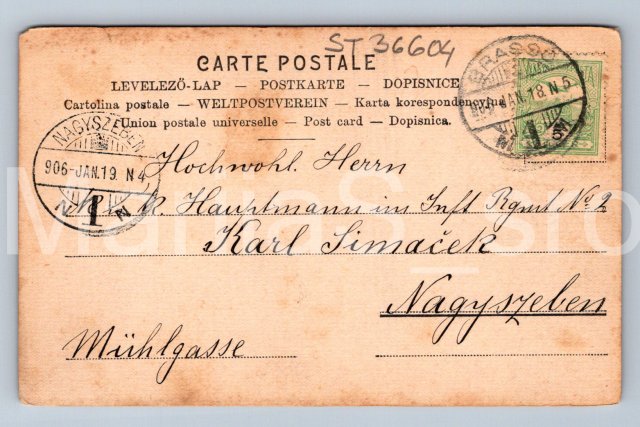 ST 36604
CARTE POSTALE
LEVELEZŐ-LAP — POSTKARTE — DOPISNICE
Cartolina postale — WELTPOSTVEREIN — Karta korespondencyjna
Union postale universelle — Post card — Dopisnica.
BRASSÓ
906 JAN. 18. N 5
NAGYSZEBEN
906-JAN.19 N 4
N 1 M
Hochwohl. Herrn
k. u. k. Hauptmann im Inft Rgmt No 2
Karl Simaček
Nagyszeben
Mühlgasse